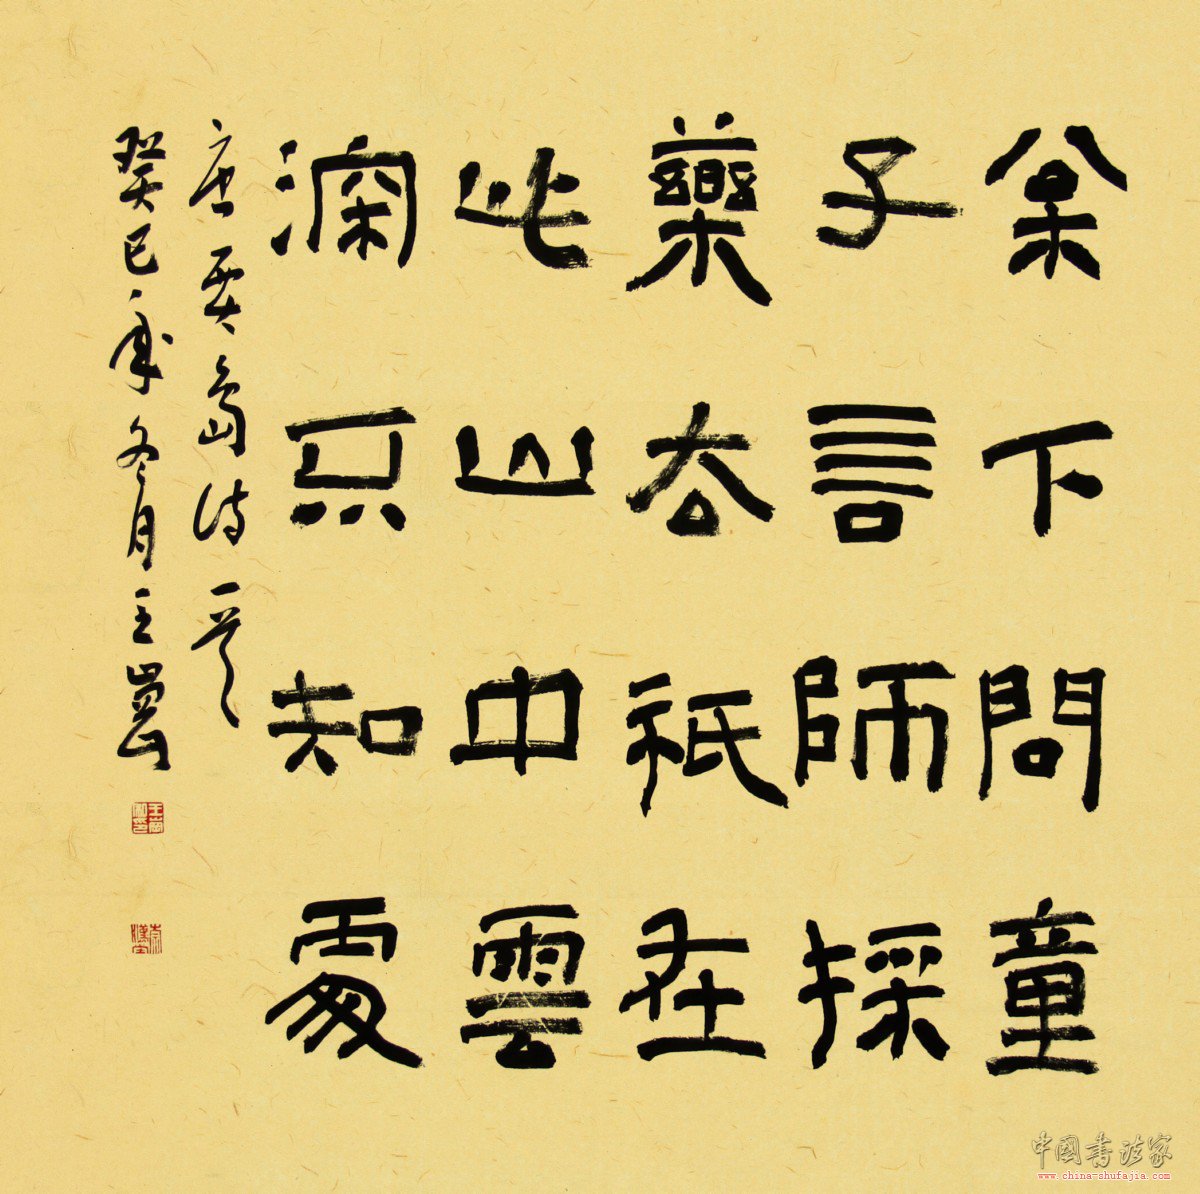 枀下問童
子言師採
藥去祇在
此山中雲
深不知處
唐賈島詩一首
癸巳年冬月王崗
中国书法家
www.china-shufajia.com